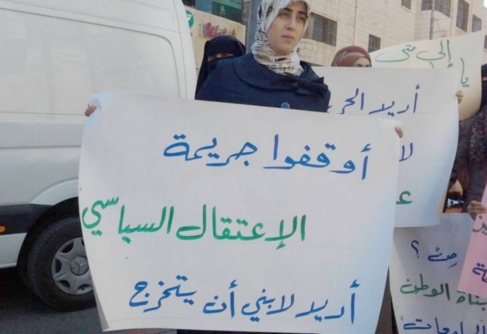 أوقفوا جريمة
الإعتقال السياسي
أريد لابني أن يتخرج
إلى متى
يا
أريد الحر
لا
من؟
بناة الوطن